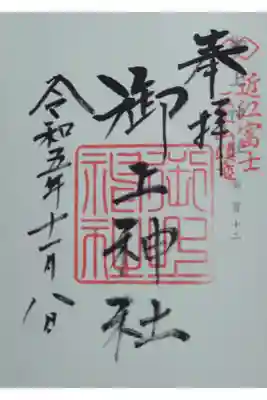 近江富士
奉拝
御上神社
御上神社
令和五年十一月八日